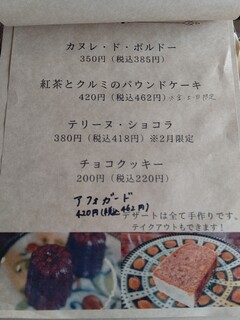 カヌレ・ド・ボルドー
350円（税込385円）
紅茶とクルミのパウンドケーキ
420円（税込462円）
テリーヌ・ショコラ
380円（税込418円）※2月限定
チョコクッキー
200円（税込220円）
アフォガード
420円(税込462円)
デザートは全て手作りです。
テイクアウトもできます！